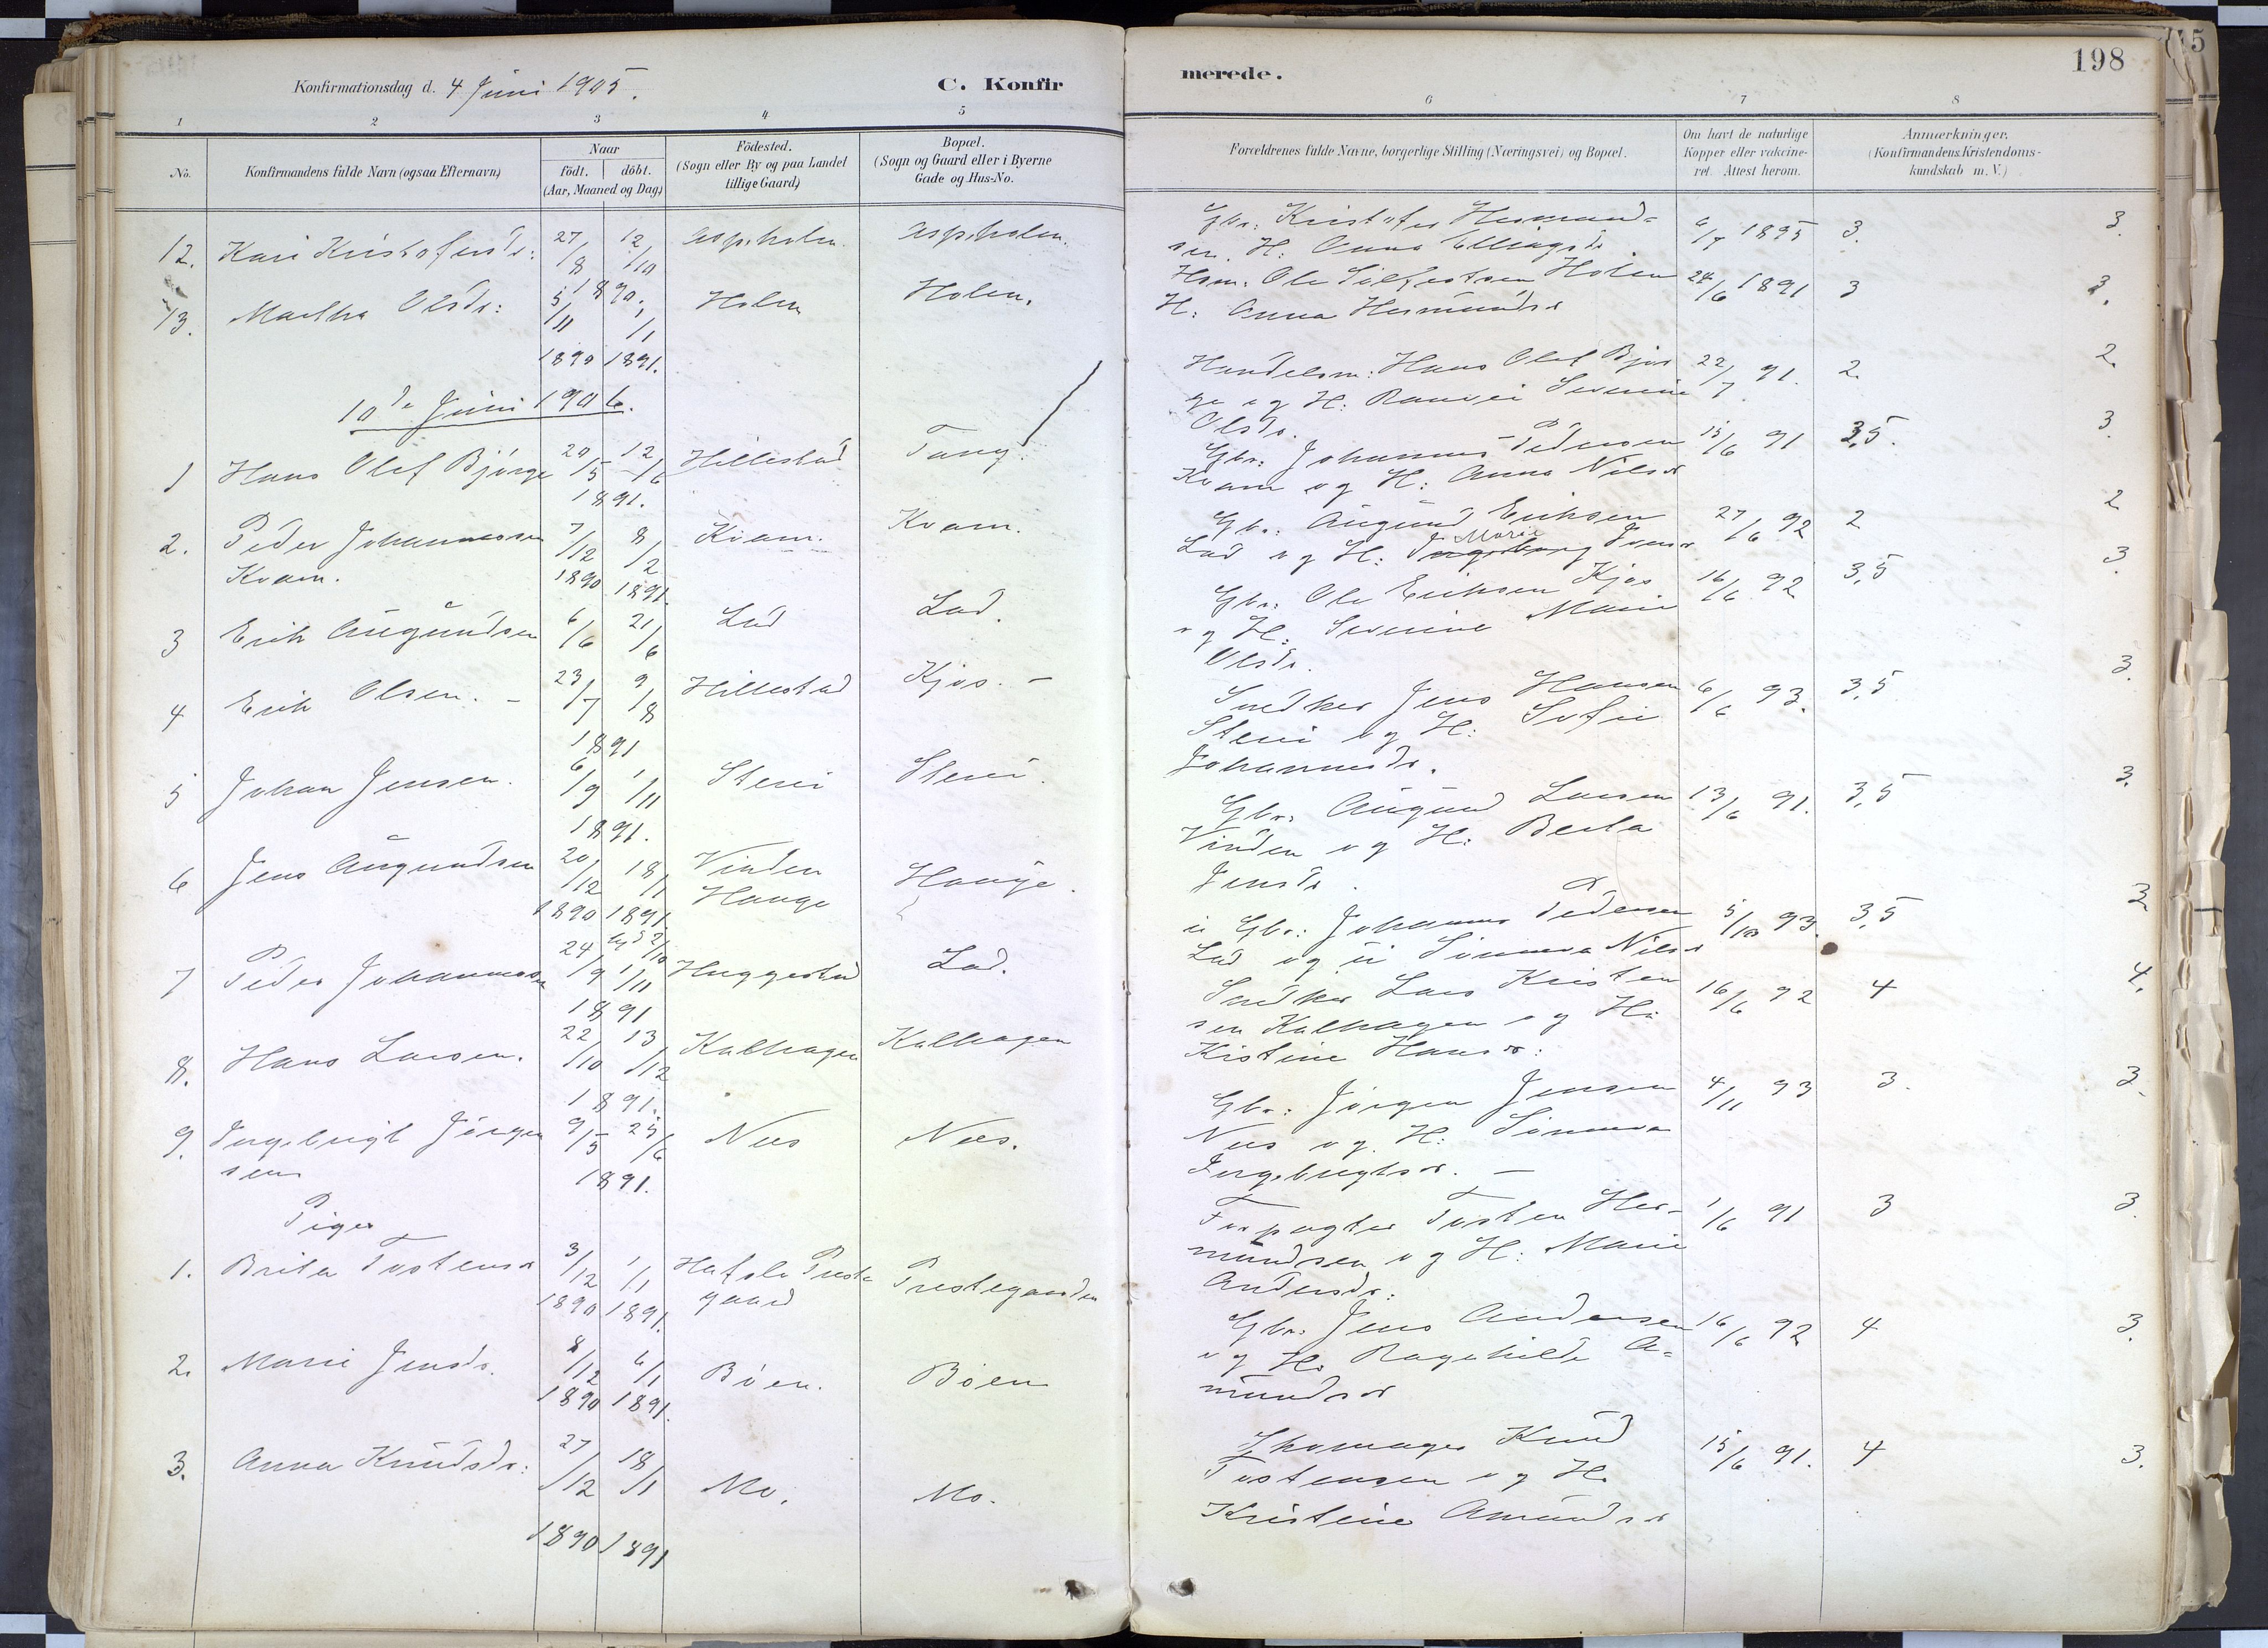 198
15
Konfirmationsdag d. 4 Juni 1905.
C. Konfirmerede.
1 2 3 4 5 6 7 8
No.
Konfirmandens fulde Navn (ogsaa Efternavn)
Naar
födt. döbt.
(Aar, Maaned og Dag)
Födested.
(Sogn eller By og paa Landet
tillige Gaard)
Bopæl.
(Sogn og Gaard eller i Byerne
Gade og Hus-No.
Forældrenes fulde Navne, borgerlige Stilling (Næringsvei) og Bopæl.
Om havt de naturlige
Kopper eller vakcine-
ret. Attest herom.
Anmærkninger.
(Konfirmandens Kristendoms-
kundskab m. V.)
12. Kari Kristofersdr: 27/8 12/10 1890. Aspholen. Aspholen. Gbr: Kristofer Hermund-
sen. H: Anna Ellingsdr 6/7 1895 3. 3.
13. Martha Olsdr: 5/11 1890 1/1 1891. Holen Holen. Hsm. Ole Silfestsen Holen
H: Anna Hermundsdr 24/6 1891 3 3.
10de Juni 1906.
1 Hans Olef Bjørge 20/5 12/6 1891. Hillestad Tang. Handelsm: Hans Olef Bjør
ge og H: Ranvei Severine
Olsdr. 22/7 91. 2. 2.
2. Peder Johannessen
Kvam. 7/12 1890 8/2 1891. Kvam. Kvam. Gbr. Johannes Pedersen
Kvam og H: Anna Nilsdr 15/6 91 3,5. 3.
3 Erik Augundsen 6/6 21/6 Lad Lad. Gbr. Augund Eriksen
Lad og H: Ingeborg Marie Iversdr 27/6 92 2 2
4 Erik Olsen. - 23/7 9/8 1891 Hillestad Kjos. - Gbr. Ole Eriksen Kjos
og H: Severine Marie
Olsdr. 16/6 92 3,5 3.
5 Johan Jensen. 6/9 1/11 1891. Steni Steni. Snedker Jens Hansen
Steni og H: Sofie
Johannesdr. 6/6 93. 3,5 3.
6 Jens Augundsen 20/12 1890 18/1 1891. Vinden
Hauge Hauge. Gbr. Augund Larsen
Vinden og H: Berta
Jensdr. 13/6 91. 3,5 3.
7 Peder Johannessen 24/9 1/11 1891 Huggestad Lad. u Gbr: Johannes Pedersen
Lad og u Sinneva Nilsdr 5/10 93. 3,5 3
8. Hans Larsen. 22/10 13/12 1891. Kalhagen Kalhagen Snedker Lars Kristen
sen Kalhagen og H:
Kistine Hansdr: 16/6 92 4 4.
9. Ingebrigt Jørgen
sen 9/5 25/6 1891. Nes Nes. Gbr: Jørgen Jensen
Nes og H: Sinneva
Ingebrigtsdr. - 4/11 93 3. 3.
Piger
1. Brita Tostensdr 3/12 1890 1/1 1891. Hafslo Preste
gaard Prestegaarden Forpagter Tosten Her-
mundsen og H: Marie
Andersdr: 1/6 91 3 3.
2. Marie Jensdr. 8/12 1890 6/1 1891. Bøen. Bøen Gbr. Jens Andersen
og H: Ragnhilde A-
mundsdr 16/6 92 4 3.
3. Anna Knudsdr: 27/12 1890 18/1 1891 Mo. Mo. Skomager Knud
Tostensen og H:
Kristine Amundsdr 15/6 91. 4 3.